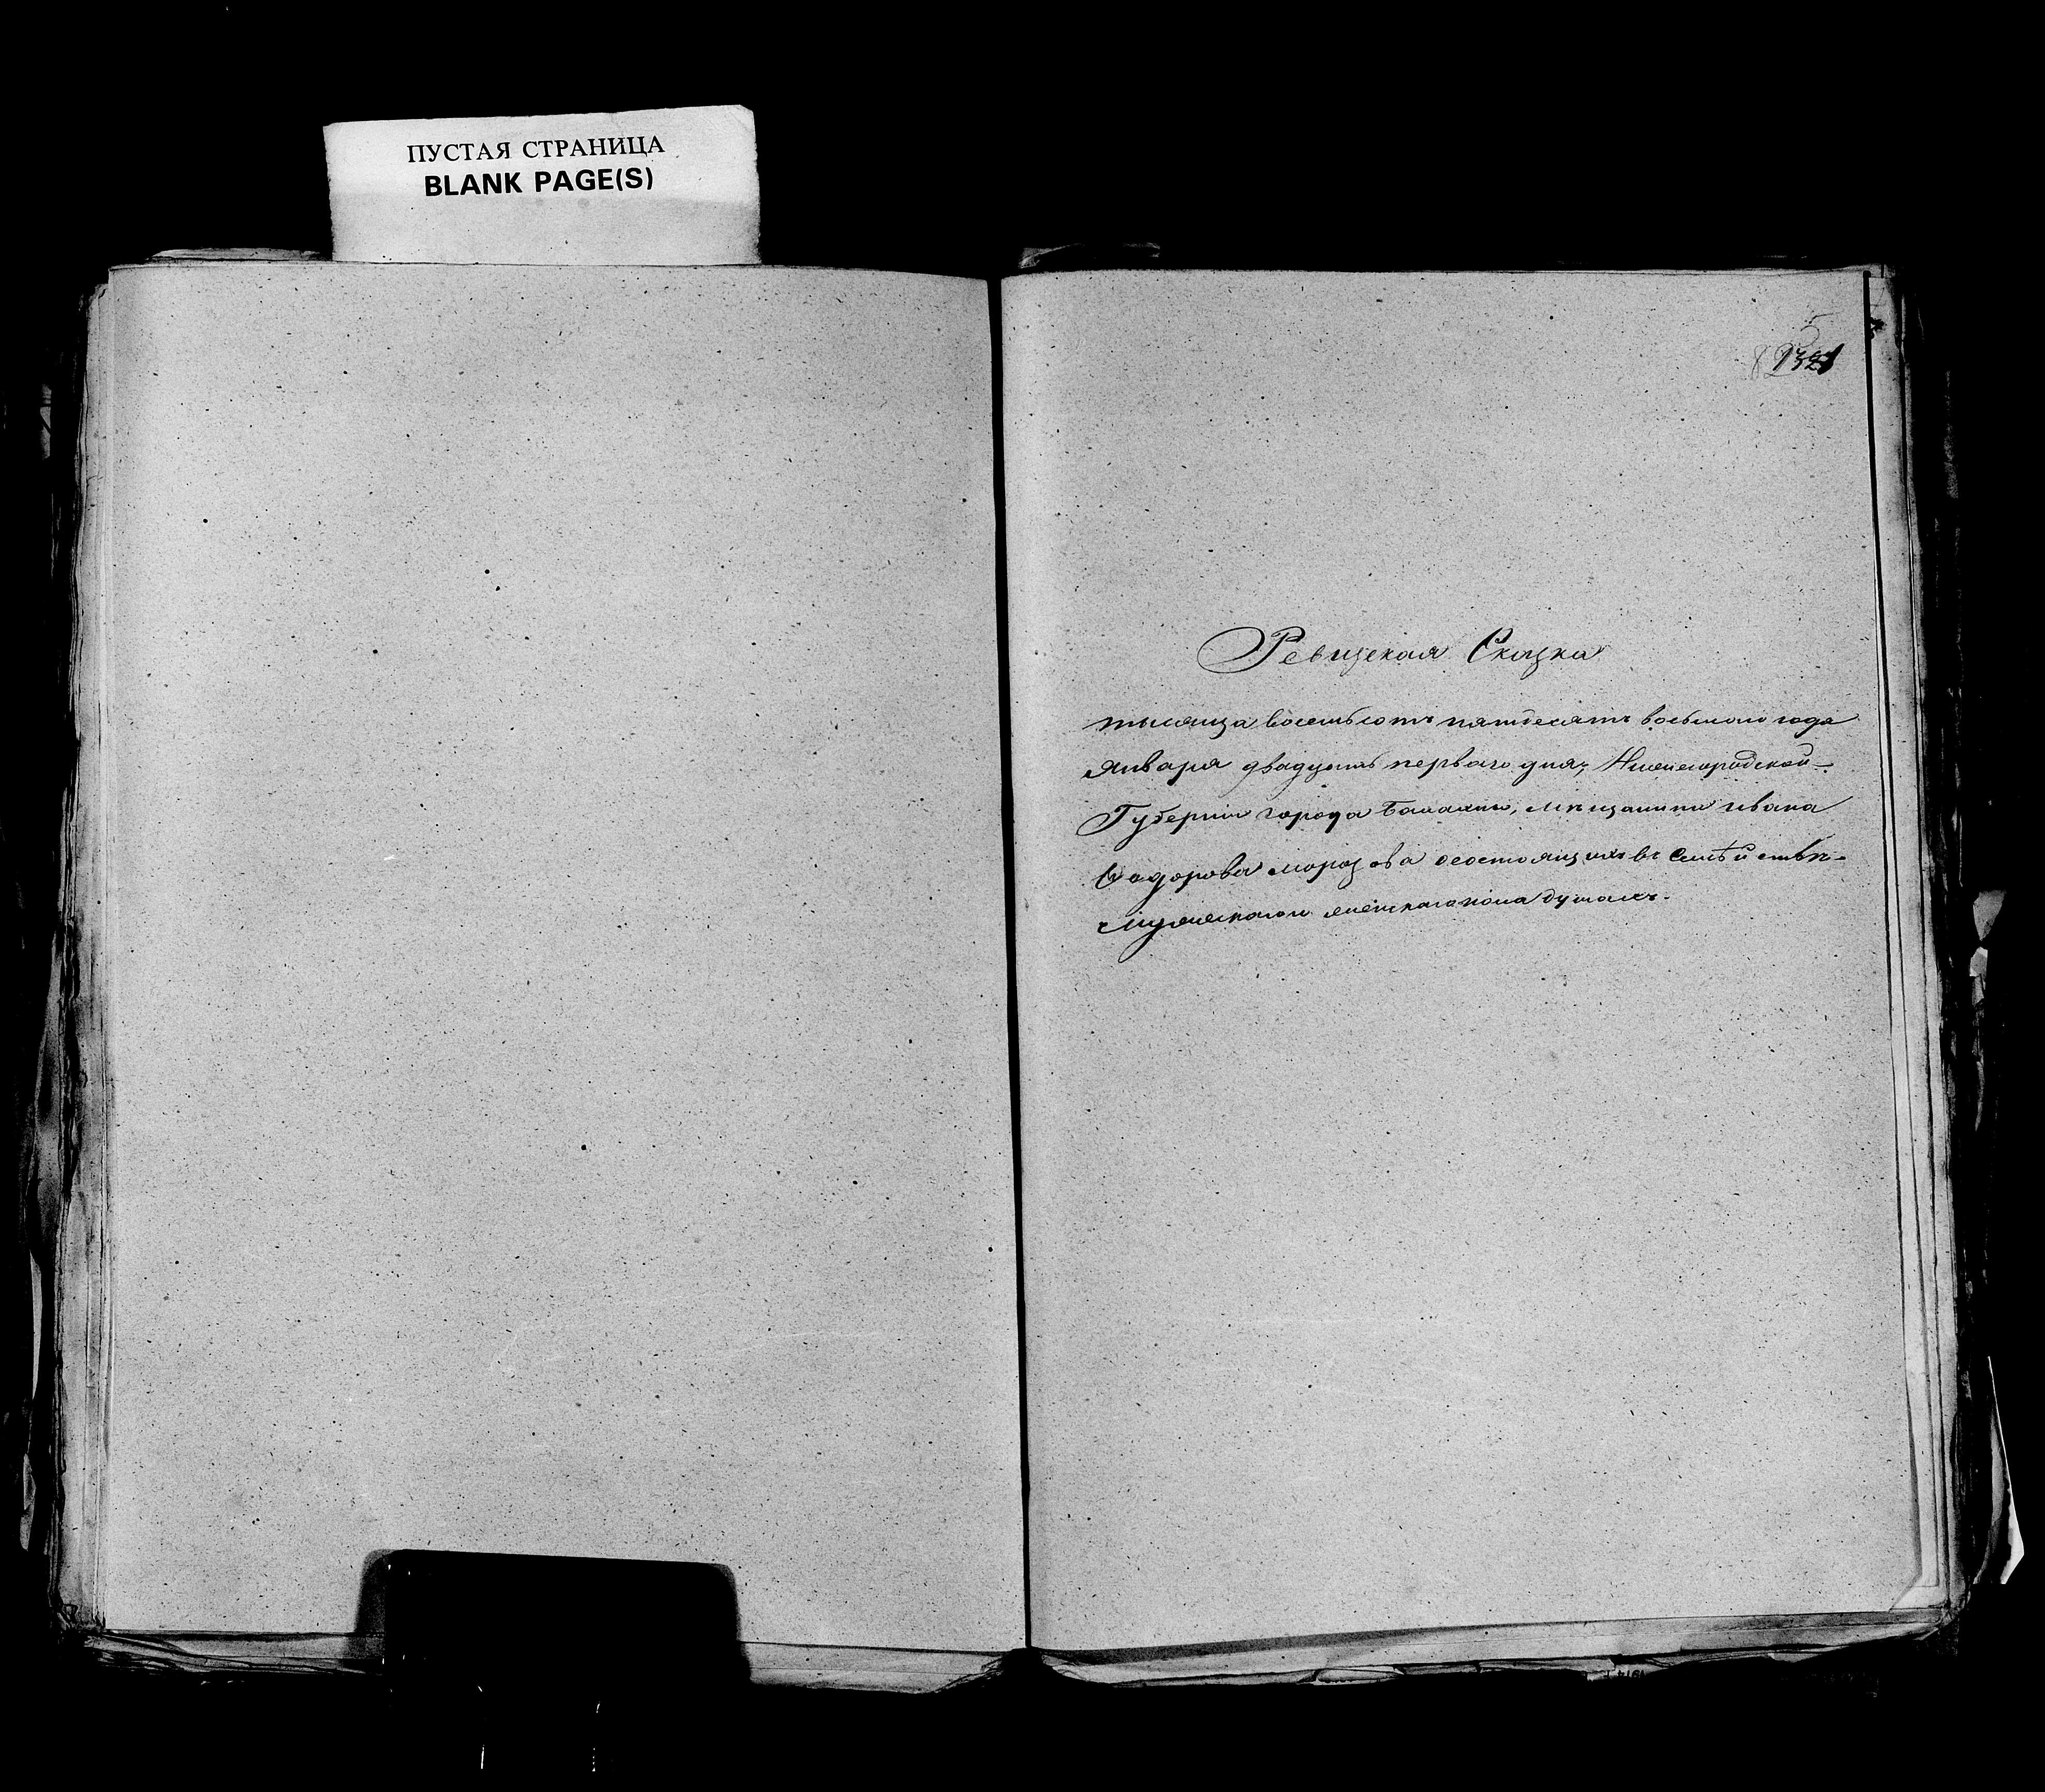 ПУСТАЯ СТРАНИЦА
BLANK PAGE(S)
5
Ревизская Сказка
тысяща восемьсотъ пятдесятъ восьмаго года
Января двадцать перваго дня, Нижегородской
Губернии города Балахны, мѣщанина ивана
Ѳедорова морозова осостоящихъ въ Семьѣ
Мужескаго и женскаго пола душахъ.